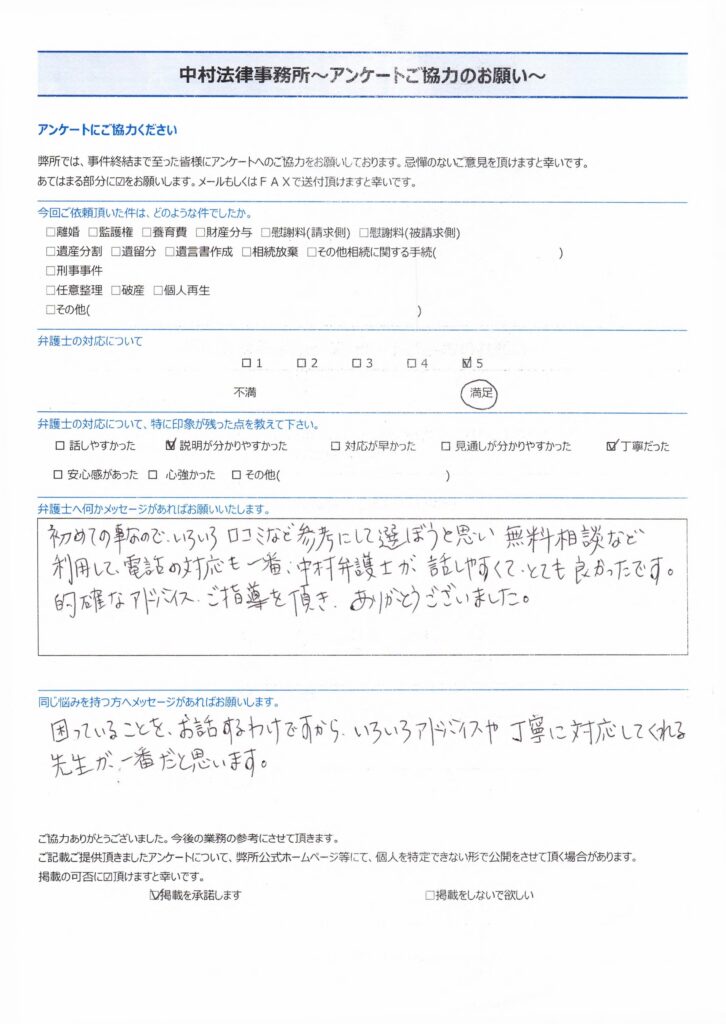 中村法律事務所～アンケートご協力のお願い～
アンケートにご協力ください
弊所では、事件終結まで至った皆様にアンケートへのご協力をお願いしております。忌憚のないご意見を頂けますと幸いです。
あてはまる部分に☑をお願いします。メールもしくはＦＡＸで送付頂けますと幸いです。
今回ご依頼頂いた件は、どのような件でしたか。
□離婚 □監護権 □養育費 □財産分与 □慰謝料(請求側) □慰謝料(被請求側)
□遺産分割 □遺留分 □遺言書作成 □相続放棄 □その他相続に関する手続( )
□刑事事件
□任意整理 □破産 □個人再生
□その他( )
弁護士の対応について
□1 □2 □3 □4 ☑5
不満 満足
弁護士の対応について、特に印象が残った点を教えて下さい。
□ 話しやすかった ☑ 説明が分かりやすかった □ 対応が早かった □ 見通しが分かりやすかった ☑丁寧だった
□ 安心感があった □ 心強かった □ その他( )
弁護士へ何かメッセージがあればお願いいたします。
初めての事なので、いろいろ 口コミなど参考にして選ぼうと思い 無料相談など
利用して、電話の対応も一番、中村弁護士が、話しやすくて、とても良かったです。
的確なアドバイス、ご指導を頂き、ありがとうございました。
同じ悩みを持つ方へメッセージがあればお願いします。
困っていることを、お話するわけですから、いろいろアドバイスや 丁寧に対応してくれる
先生が、一番だと思います。
ご協力ありがとうございました。今後の業務の参考にさせて頂きます。
ご記載ご提供頂きましたアンケートについて、弊所公式ホームページ等にて、個人を特定できない形で公開をさせて頂く場合があります。
掲載の可否に☑頂けますと幸いです。
☑掲載を承諾します □掲載をしないで欲しい